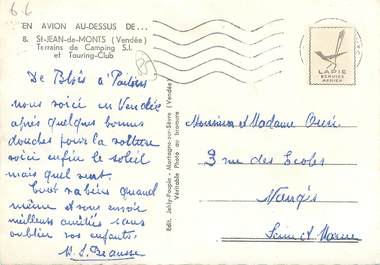 6.6
EN AVION AU-DESSUS DE...
8. St-JEAN-de-MONTS (Vendée)
Terrains de Camping S.I.
et Touring-Club
De Blois à Poitiers
nous voici en Vendée
après quelques bonnes
douches pour la voiture
voici enfin le soleil
mais quel vent.
tout va bien quand
même et vous envoie
meilleures amitiés sans
oublier vos enfants.
Edit. Jehly-Poupin - Mortagne-sur-Sèvre (Vendée)
Véritable Photo au bromure
LAPIE
SERVICE
AERIEN
Monsieur et Madame
3 rue des Ecoles
Nangis
Seine et Marne